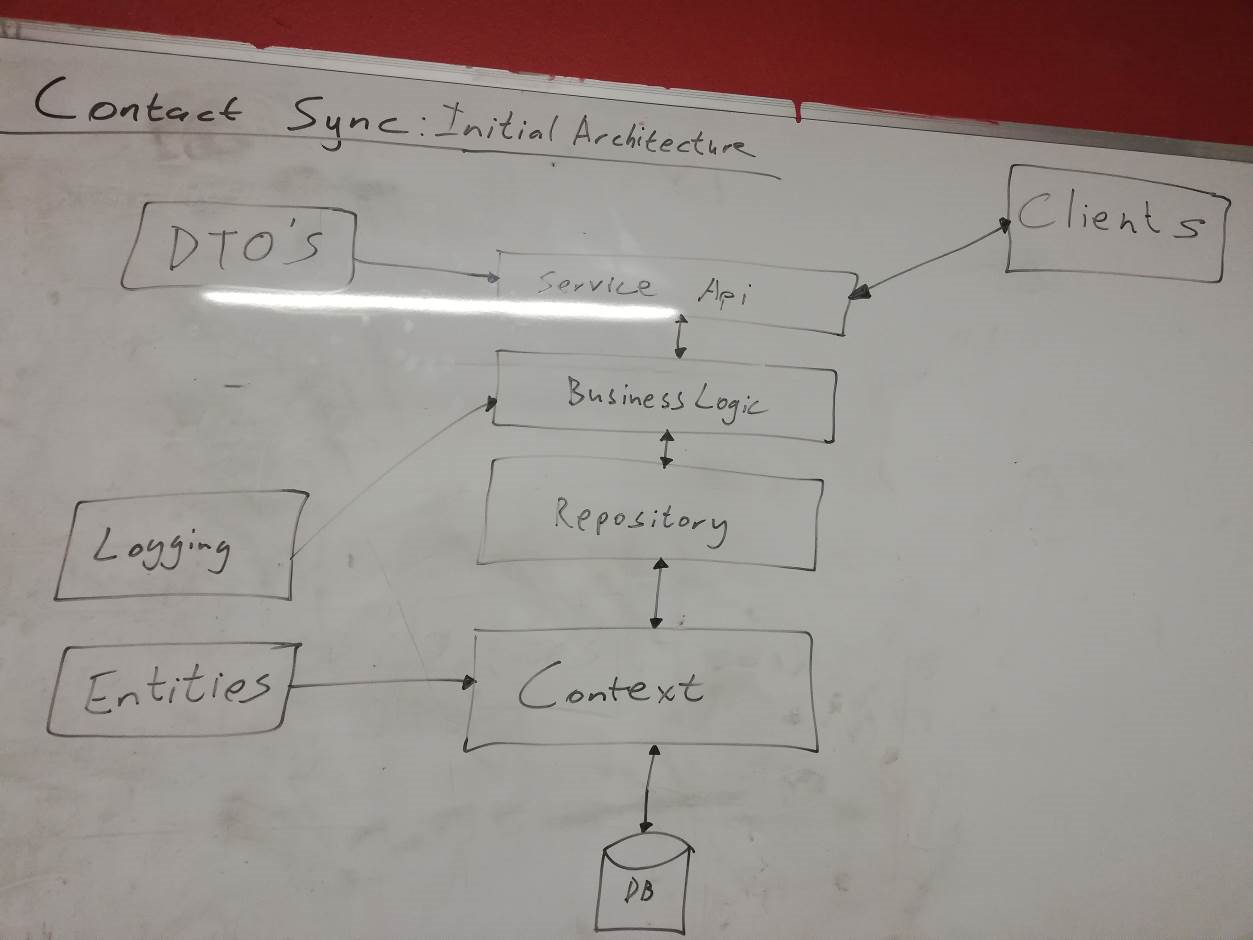 Contact Sync: Initial Architecture
Clients
DTO's
Service Api
Business Logic
Repository
Logging
Entities
Context
DB